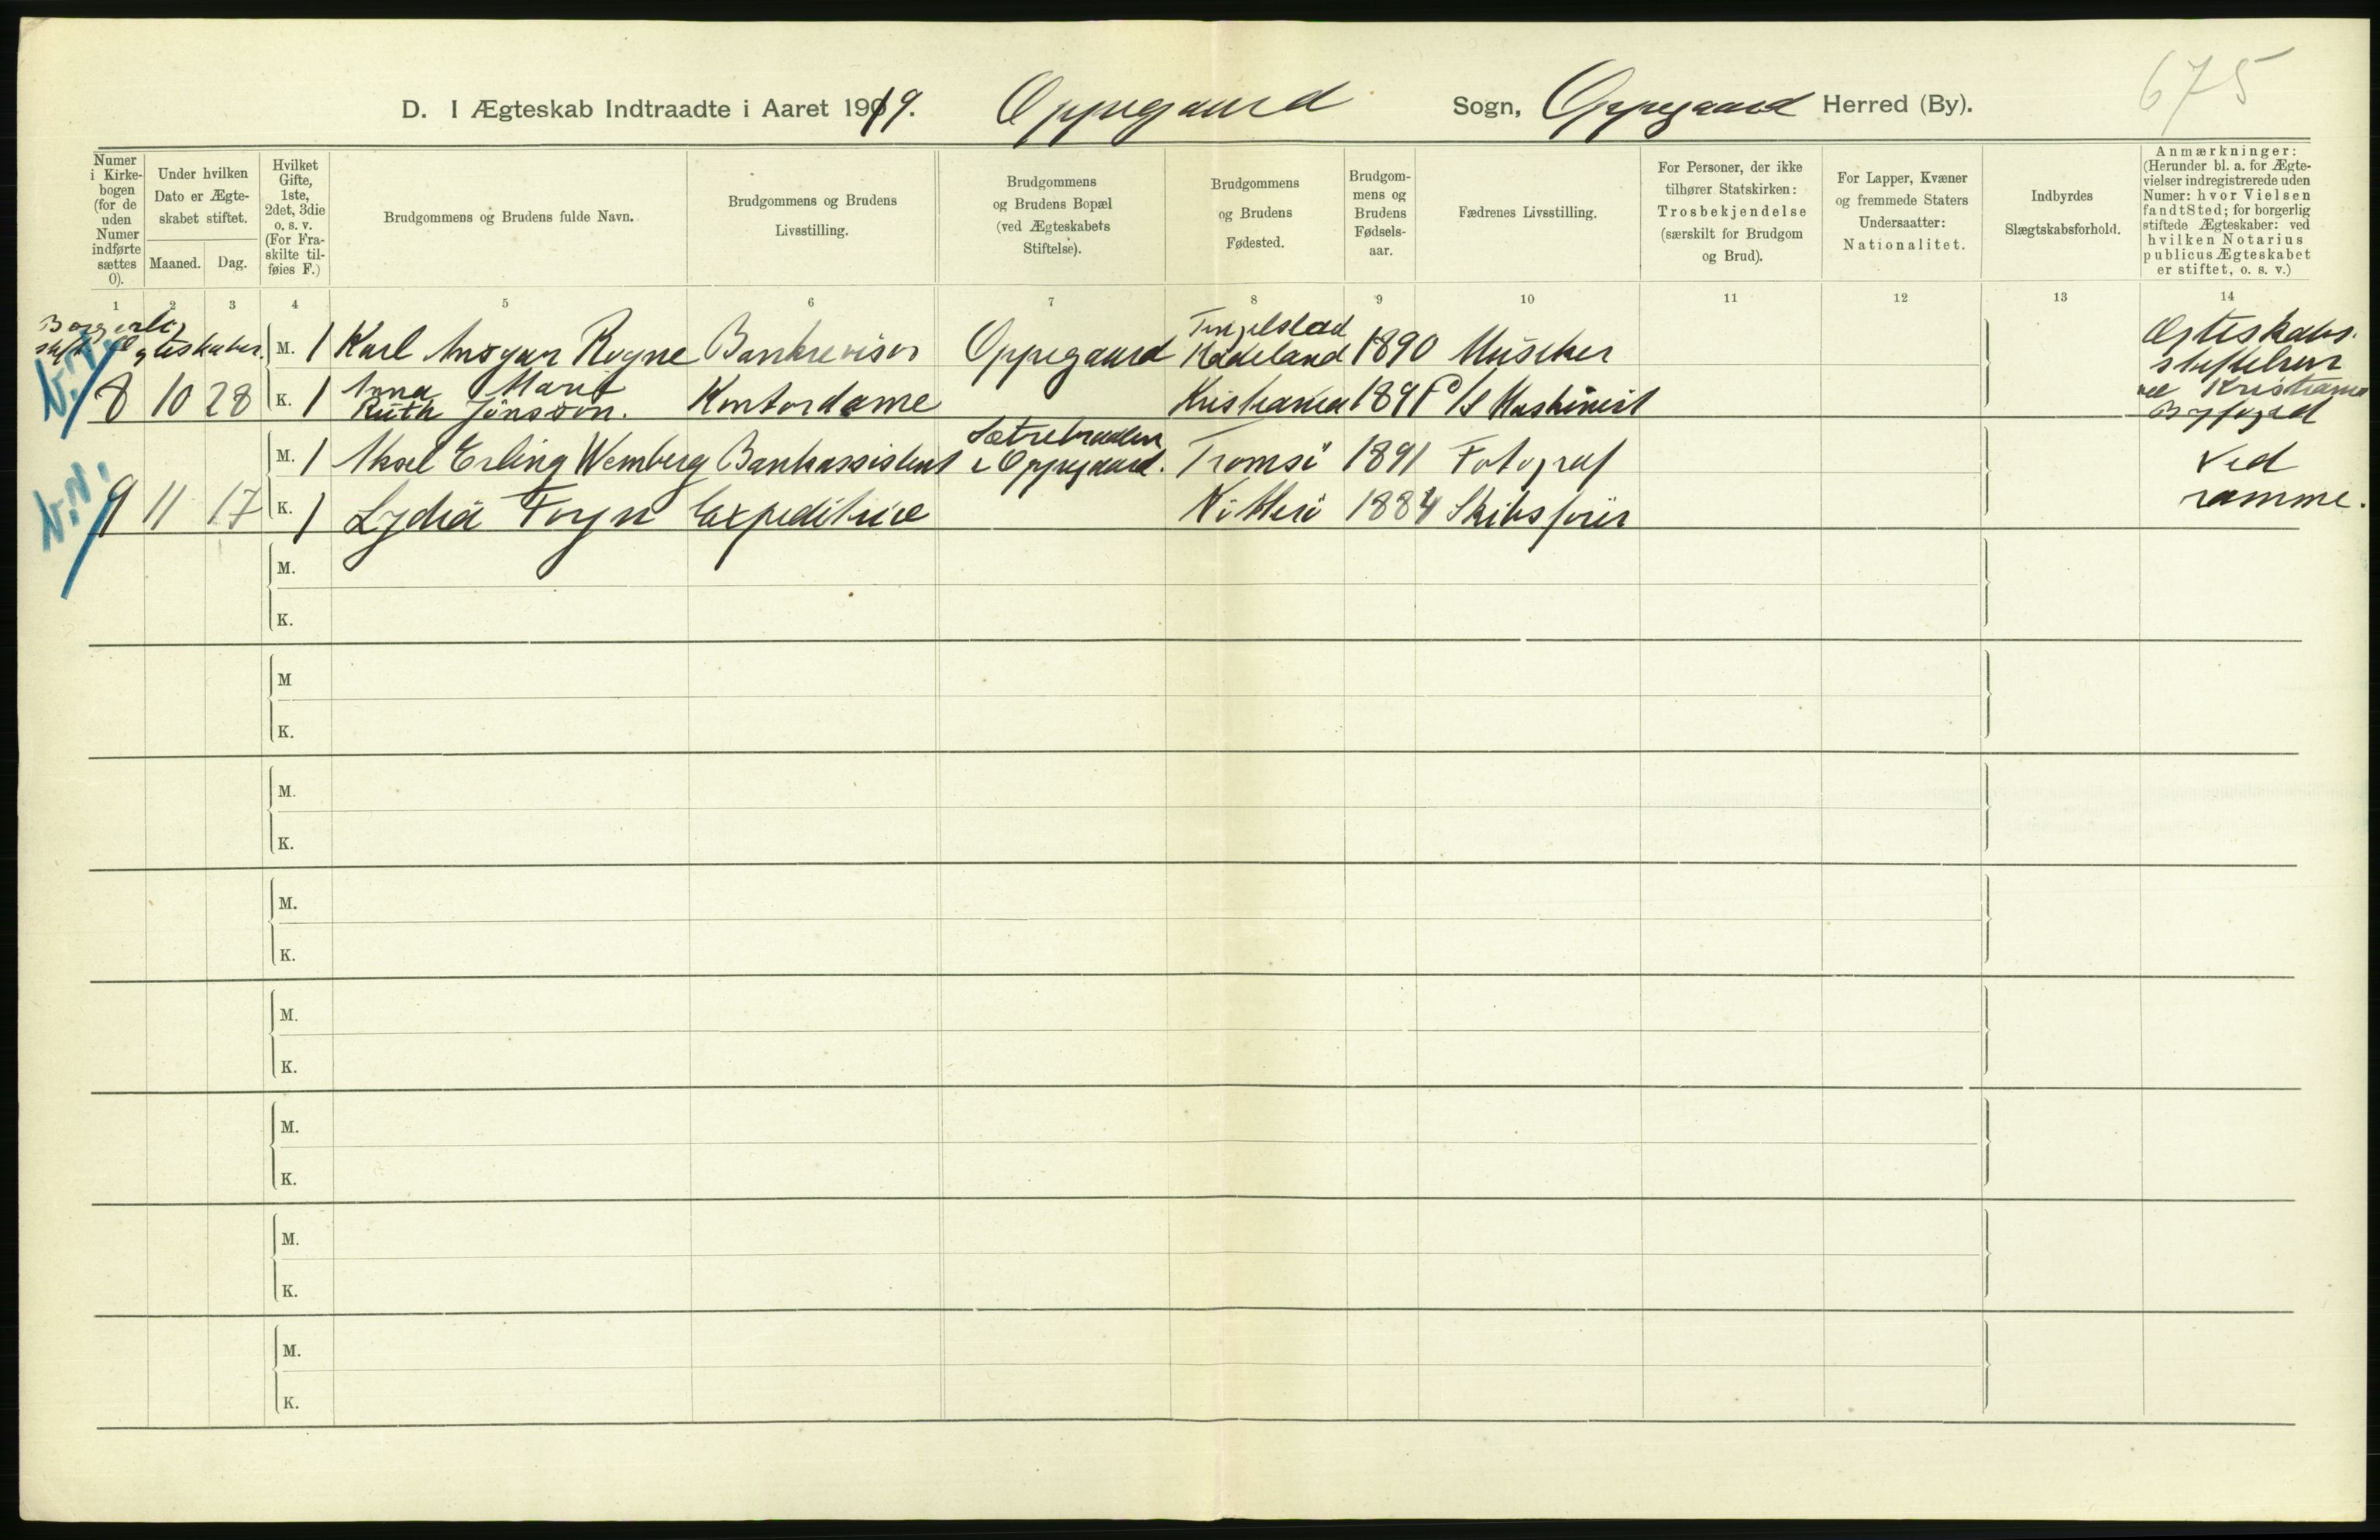 675
D. I Ægteskab Indtraadte i Aaret 1919. Oppegaard Sogn, Oppegaard Herred (By).
Numer i Kirkebogen (for de uden Numer indførte sættes 0).
Under hvilken Dato er Ægteskabet stiftet.
Maaned. Dag.
Hvilket Gifte, 1ste, 2det, 3die o. s. v. (For Fraskilte tilføies F.)
Brudgommens og Brudens fulde Navn.
Brudgommens og Brudens Livsstilling.
Brudgommens og Brudens Bopæl (ved Ægteskabets Stiftelse).
Brudgommens og Brudens Fødested.
Brudgommens og Brudens Fødselsaar.
Fædrenes Livsstilling.
For Personer, der ikke tilhører Statskirken: Trosbekjendelse (særskilt for Brudgom og Brud).
For Lapper, Kvæner og fremmede Staters Undersaatter: Nationalitet.
Indbyrdes Slægtskabsforhold.
Anmærkninger: (Herunder bl. a. for Ægtevielser indregistrerede uden Numer: hvor Vielsen fandt Sted; for borgerlig stiftede Ægteskaber: ved hvilken Notarius publicus Ægteskabet er stiftet, o. s. v.)
1 2 3 4 5 6 7 8 9 10 11 12 13 14
Borgerlig
stift. Ægteskaber.
N.N.
M. 1 Karl Ansgar Rogne Bankrevisor Oppegaard Tingelstad Hadeland 1890 Musiker Ægteskabs-
stiftelser
8 10 28 K. 1 Anna Marie Ruth Jönsson. Kontordame Kristiania 1891 Maskinist ved Kristiania
Byfoged
M. 1 Aksel Erling Wemberg Bankassistent Sætrebraaten i Oppegaard. Tromsö 1891 Fotograf Ved
N.N.
9 11 17 K. 1 Lydia Foyn Expeditrice Nötterö 1884 Skibsförer samme.
M.
K.
M
K.
M.
K.
M.
K.
M.
K.
M.
K.
M.
K.
M.
K.